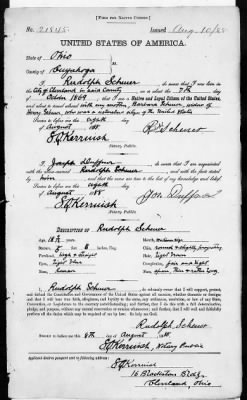 [FORM FOR NATIVE CITIZEN.]
No. 21545. Issued Aug. 10/88
UNITED STATES OF AMERICA.
State of Ohio
County of Cuyahoga
I, Rudolph Scheuer, do swear that I was born
in City of Cleveland in said County on the 7th day
of October 1869, that I am a Native and Loyal Citizen of the United States,
and about to travel abroad with my mother, Barbara Scheuer, widow of
Henry Scheuer, who was a naturalized citizen of the United States
Sworn to before me this eighth day
of August 188
S. Q. Kerruish
Notary Public.
I, Joseph Duffner, do swear that I am acquainted
with the above-named Rudolph Scheuer and with the facts stated
by him, and that the same are true to the best of my knowledge and belief.
Sworn to before me this eighth day
of August 188
S. Q. Kerruish
Notary Public.
DESCRIPTION OF Rudolph Scheuer
Age,
Stature,
Forehead, high &
Eyes, light blue
Nose,
Mouth, medium size
Chin, round &
Hair, light brown
Complexion, fair and
Face,
I, Rudolph Scheuer, do solemnly swear that I will support, protect,
and defend the Constitution and Government of the United States against all enemies, whether domestic or foreign;
and that I will bear true faith, allegiance, and loyalty to the same, any ordinance, resolution, or law of any State,
Convention, or Legislature to the contrary notwithstanding; and further, that I do this with a full determination,
pledge, and purpose, without any mental reservation or evasion whatsoever; and further, that I will well and
faithfully perform all the duties which may be required of me by law. So help me God.
Rudolph Scheuer
Sworn to before me this 8th day of August 188
S. Q. Kerruish, Notary Public
Applicant desires passport sent to following address:
S. Q. Kerruish
16 Blackstone Bldg.
Cleveland, Ohio